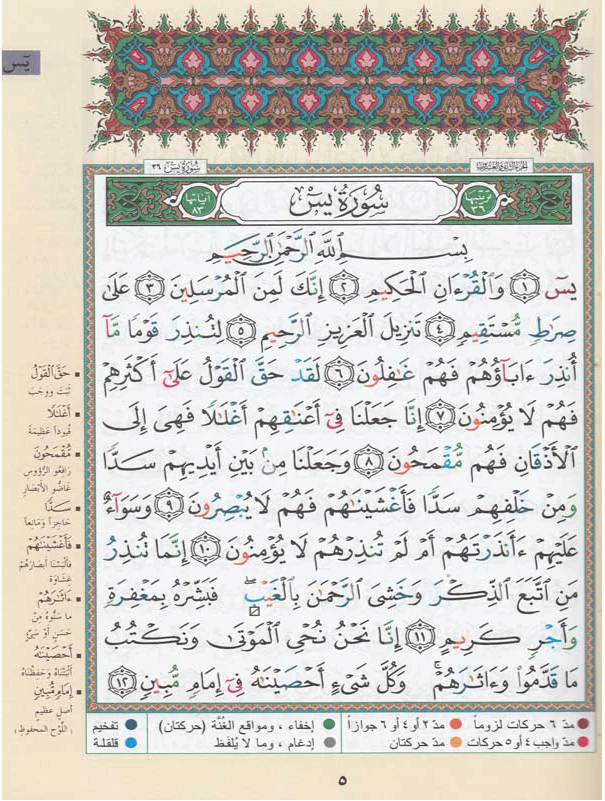 يٓس
سُورَةُ يسٓ ٣٦
الجزء الثاني والعشرون
ترتيبها ٣٦
سُورَةُ يسٓ
آياتها ٨٣
بِسْمِ ٱللَّهِ ٱلرَّحْمَٰنِ ٱلرَّحِيمِ
يسٓ ۝١ وَٱلْقُرْءَانِ ٱلْحَكِيمِ ۝٢ إِنَّكَ لَمِنَ ٱلْمُرْسَلِينَ ۝٣ عَلَىٰ
صِرَٰطٍ مُّسْتَقِيمٍ ۝٤ تَنزِيلَ ٱلْعَزِيزِ ٱلرَّحِيمِ ۝٥ لِتُنذِرَ قَوْمًا مَّآ
أُنذِرَ ءَابَآؤُهُمْ فَهُمْ غَٰفِلُونَ ۝٦ لَقَدْ حَقَّ ٱلْقَوْلُ عَلَىٰٓ أَكْثَرِهِمْ
فَهُمْ لَا يُؤْمِنُونَ ۝٧ إِنَّا جَعَلْنَا فِىٓ أَعْنَٰقِهِمْ أَغْلَٰلًا فَهِىَ إِلَى
ٱلْأَذْقَانِ فَهُم مُّقْمَحُونَ ۝٨ وَجَعَلْنَا مِنۢ بَيْنِ أَيْدِيهِمْ سَدًّا
وَمِنْ خَلْفِهِمْ سَدًّا فَأَغْشَيْنَٰهُمْ فَهُمْ لَا يُبْصِرُونَ ۝٩ وَسَوَآءٌ
عَلَيْهِمْ ءَأَنذَرْتَهُمْ أَمْ لَمْ تُنذِرْهُمْ لَا يُؤْمِنُونَ ۝١٠ إِنَّمَا تُنذِرُ
مَنِ ٱتَّبَعَ ٱلذِّكْرَ وَخَشِىَ ٱلرَّحْمَٰنَ بِٱلْغَيْبِ ۖ فَبَشِّرْهُ بِمَغْفِرَةٍ
وَأَجْرٍ كَرِيمٍ ۝١١ إِنَّا نَحْنُ نُحْىِ ٱلْمَوْتَىٰ وَنَكْتُبُ
مَا قَدَّمُوا۟ وَءَاثَٰرَهُمْ ۚ وَكُلَّ شَىْءٍ أَحْصَيْنَٰهُ فِىٓ إِمَامٍ مُّبِينٍ ۝١٢
حَقَّ القَوْلُ
ثبَتَ ووجَبَ
أَغْلَٰلًا
قُيوداً عَظيمَةً
مُّقْمَحُونَ
رافِعُو الرُّؤُوسِ
غاضُّو الأبْصارِ
سَدًّا
حَاجِزاً ومَانِعاً
فَأَغْشَيْنَٰهُمْ
فألبَسْنا أبصَارَهُمْ
غِشَاوَة
ءَاثَٰرَهُمْ
ما سَنُّوه مِنْ
حَسَنٍ أوْ سَيِّئٍ
أَحْصَيْنَٰهُ
أثبَتْنَاهُ وَحَفِظْنَاهُ
إِمَامٍ مُّبِينٍ
أصْلٍ عظيمٍ
(اللَّوْحِ المَحفوظِ)
مدّ ٦ حركات لزوماً
مدّ ٢ أو ٤ أو ٦ جوازاً
إخفاء ، ومواقع الغُنَّة (حركتان)
تفخيم
مدّ واجب ٤ أو ٥ حركات
مدّ حركتان
إدغام ، وما لا يُلفَظ
قلقلة
٥